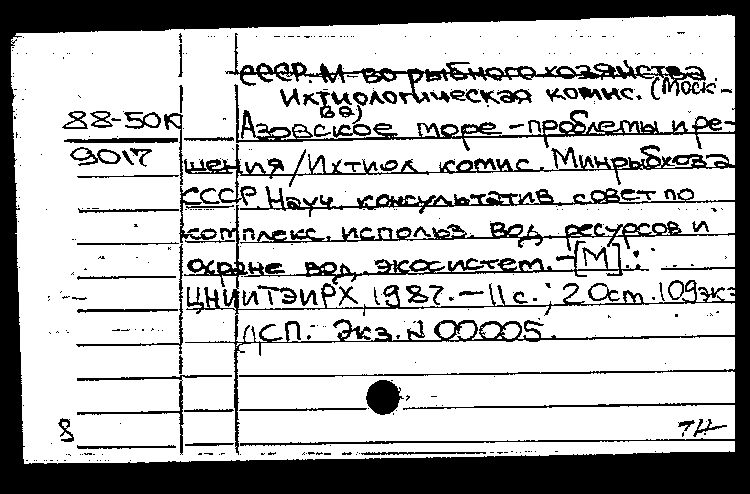 СССР. М-во рыбного хозяйства
Ихтиологическая комис. (Моск-
ва)
88-50К
Азовское море - проблемы и ре-
9017
шения / Ихтиол. комис. Минрыбхоза
СССР. Науч. консультатив. совет по
комплекс. использ. вод. ресурсов и
охране вод. экосистем. - [М] :
ЦНИИТЭИРХ, 1987. - 11 с. ; 20 см. 109 экз
ДСП. Экз. N 00005.
8